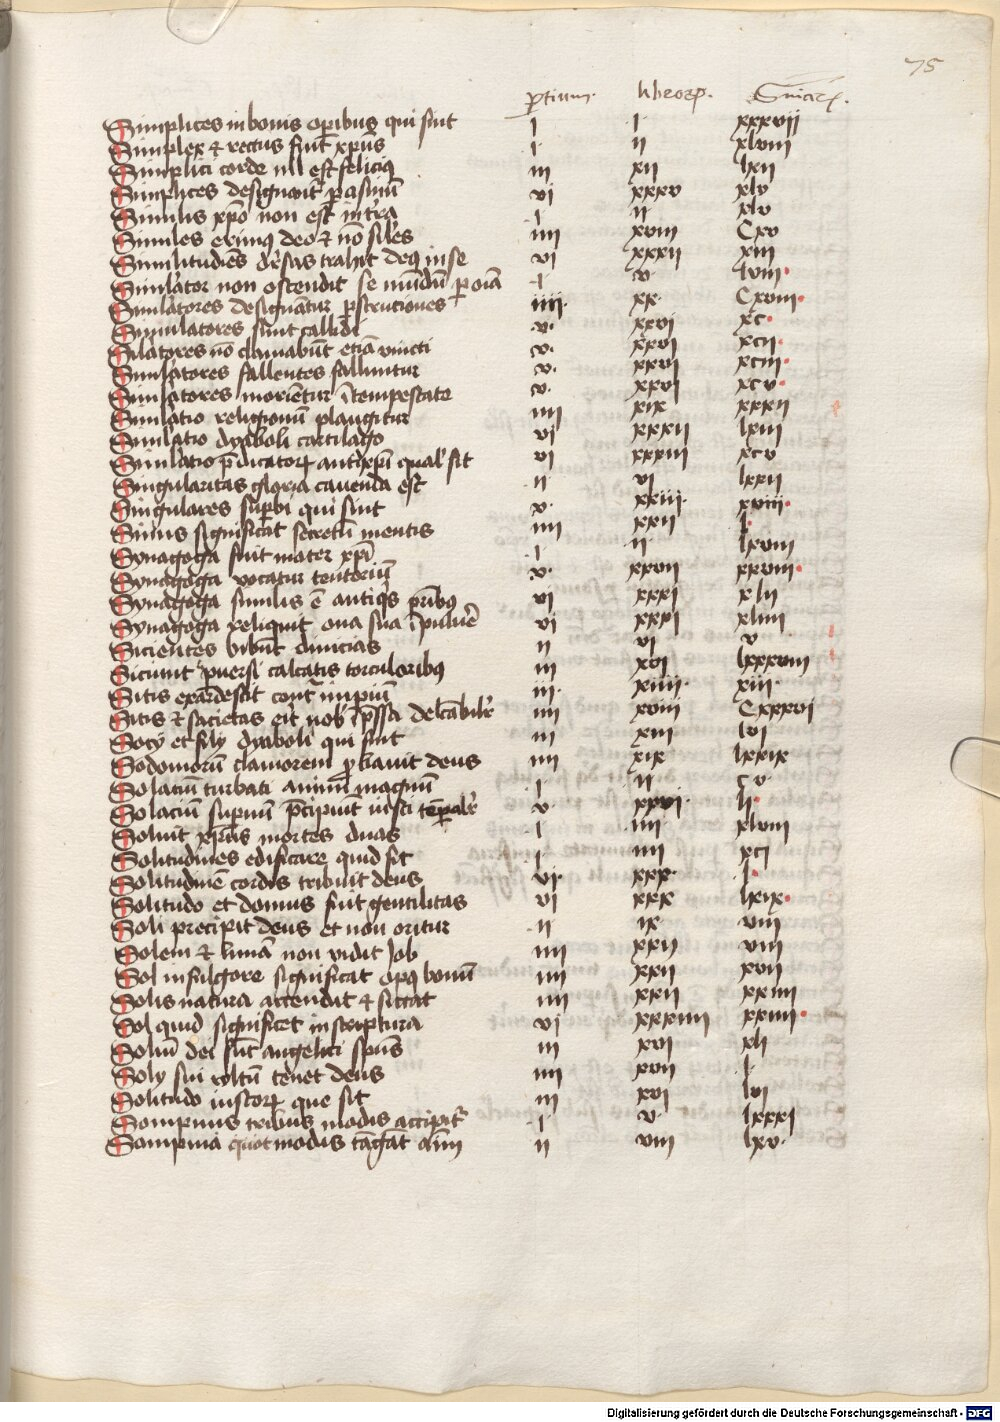 75
p̲tium. libroꝝ. Sm̅arꝝ.
Simplices in bonis op̲ibus qui sint j j xxxvij
Simplex ⁊ rectus fuit xp̅us j ij xlviij
Simplici corde nil est feliciꝰ iij xij lxij
Simplices designant᷑ p̲ asinū vj xxxv xlv
Similis xp̅o non est in t̅ra j ij xlv
Similes erimꝰ deo ⁊ nō sil̅es iiij xviij Cxv
Similitudīes d̓sas trahit deꝰ in se vj xxxij xiij
Simulator non ostendit se mūdū p̲ oīa j v lviij
Simulatores designāt᷑ p̲secutiones iiij xx Cxviij
Simulatores sunt callidi v xxvj xc
Sil̅atores nō clamabūt etiā vincti v. xxvj xcij
Simulatores fallentes falluntur v. xxvj xciij
Simulatores moriētur ī tempestate v. xxvj xcv
Simulatio religionū plangitur iiij xix xxxij
Simulatio dyaboli cartilago vj xxxij lxiij
Simulatio p̅dicatoꝝ antixp̅i qual̓ sit vj xxxiij xcv
Singularitas gloria cavenda est ij vj lxxij
Singulares sup̲bi qui sint v. xxiij xviij
Sinus significat secretū mentis iiij xxij j
Synagoga fuit mater xp̅i j ij lxviij
Synagoga vocatur tentoriū v. xxvij xxviij
Synagoga similis ē antiqͥs p̅ribꝰ vj xxxj xlij
Synagoga reliquit oua sua ī pulue̅ vj xxxj xliiij
Sicientes bibūt diuicias ij vj v
Siciunt p̲uersi calcatis torcularibꝰ iij xvj lxxxviij
Sitis exardescit cont̅ impiū iij. xiiij xiij
Sitis ⁊ sacietas erit nob̓ ip̅ssa delc̅abil̓r iiij xviij Cxxxvj
Socij et filij dyaboli qui sint iij xiij lvj
Sodomorū clamorem p̲bauit deus iiij xix lxxix
Solaciū turbati animū magnū j ij cv
Solaciū supnū p̅cipiūt iusti te̅pal̓r v. xxvj lj
Soluit xp̅us mortes duas j iiij xlviij
Solitudines edificare quid sit j iiij xcj
Solitudinē cordis tribuit deus vj xxx. j
Solitudo et domus fuit gentilitas vj xxx lxix
Soli precipit deus et non oritur ij ix viij
Solem ⁊ lunā non vidit Job iiij xxij viij
Sol in fulgore significat opꝰ bonū iiij xxij xvij
Solis natura accendit ⁊ siccat iiij xxij xxiiij
Sol quid significet in scriptura vj xxxiiij xxiiij
Soliū dei sūt angelici sp̅us iij xvj xlj
Solij sui vultū tenet deus iiij xvij j
Solitudo iustoꝝ que sit iij xvj lvj
Sompnus tribus modis accipit᷑ j v lxxxj
Sompnia quot modis tāgāt aīm ij viij lxv
Digitalisierung gefördert durch die Deutsche Forschungsgemeinschaft - DFG